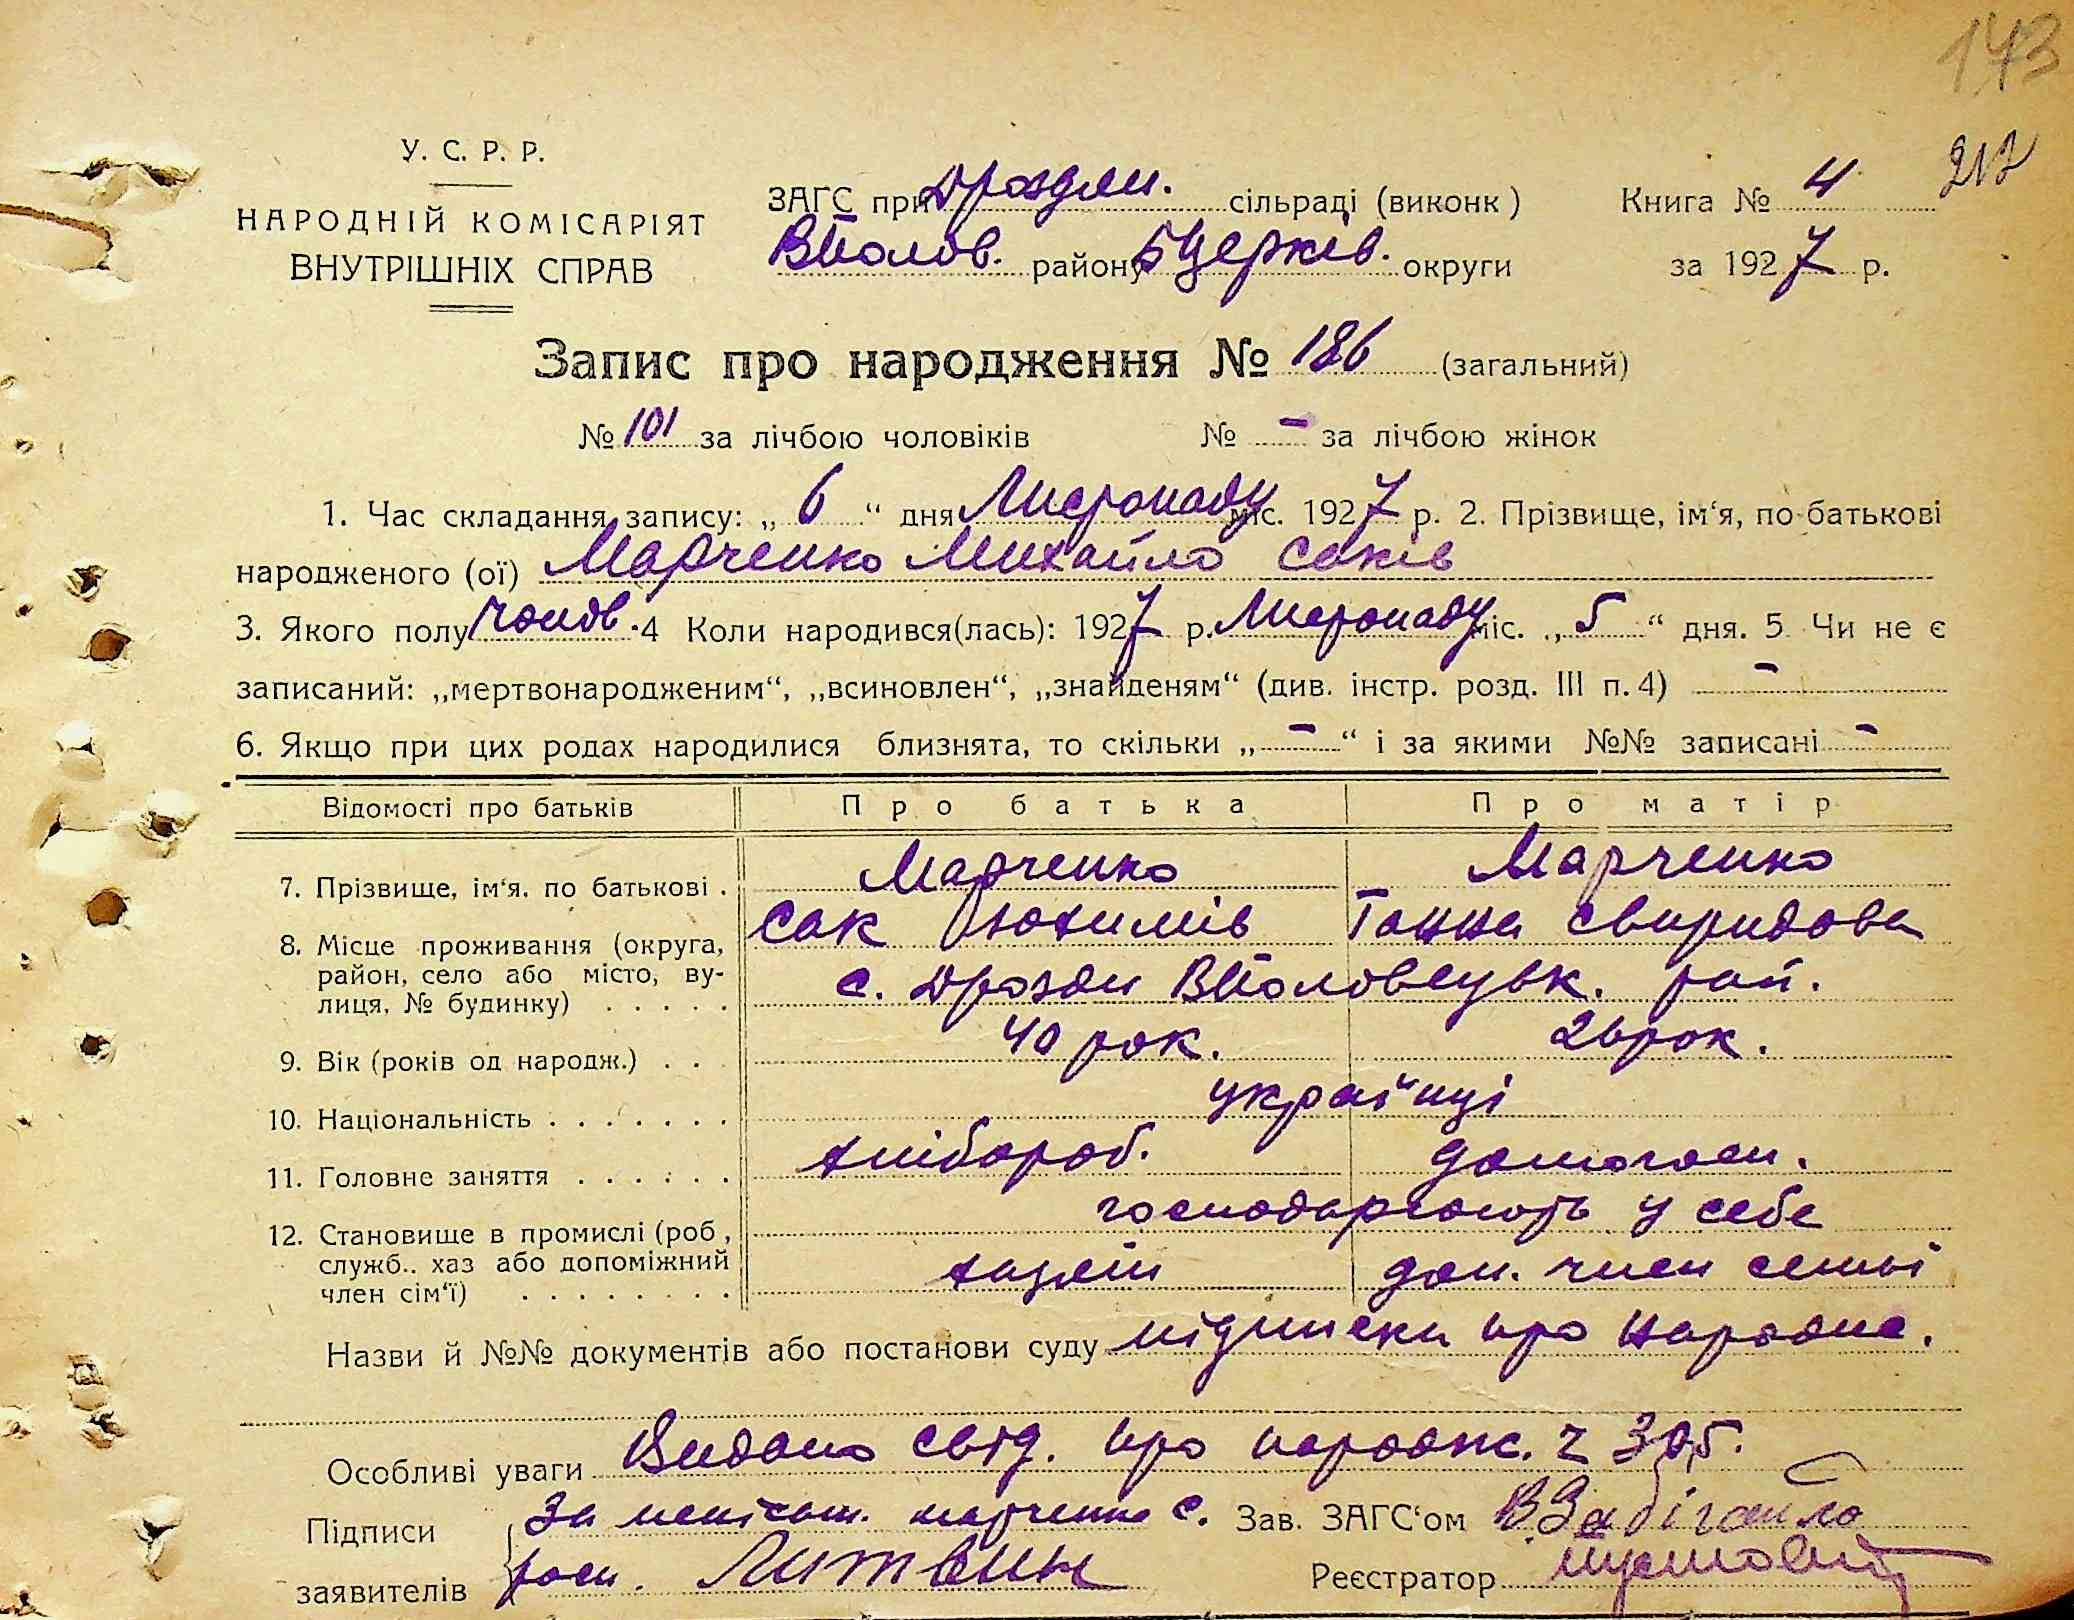 143
212
У. С. Р. Р.
НАРОДНІЙ КОМІСАРІЯТ
ВНУТРІШНІХ СПРАВ
ЗАГС при Дроздян. сільраді (виконк)
ВПолов. району БЦерків. округи
Книга № 4
за 1927 р.
Запис про народження № 186 (загальний)
№ 101 за лічбою чоловіків № – за лічбою жінок
1. Час складання запису: „ 6 “ дня Листопаду міс. 1927 р. 2. Прізвище, ім‘я, по-батькові
народженого (ої) Марченко Михайло Саків
3. Якого полу чолов. 4 Коли народився(лась): 1927 р. Листопаду міс. „ 5 “ дня. 5. Чи не є
записаний: „мертвонародженим“, „всиновлен“, „знайденям“ (див. інстр. розд. III п. 4) –
6. Якщо при цих родах народилися близнята, то скільки „ – “ і за якими №№ записані –
Відомості про батьків Про батька Про матір
7. Прізвище, ім‘я, по батькові . Марченко Марченко
Сак Юхимів Ганна Свиридова
8. Місце проживання (округа,
район, село або місто, ву-
лиця, № будинку) . . . . . с. Дрозди ВПоловецьк. рай.
9. Вік (років од народж.) . . 40 рок. 26 рок.
10. Національність . . . . . . . українці
11. Головне заняття . . . . . . хлібороб. домогосп.
12. Становище в промислі (роб,
служб.. хаз або допоміжний
член сім‘ї) . . . . . . . .
господарюють у себе
хазяїн доп. член семьі
Назви й №№ документів або постанови суду підписки про народж.
Особливі уваги Видано свід. про народж. ч 305.
Підписи
заявителів
За неписьм. Марченко С.
росп. Литвин
Зав. ЗАГС‘ом ВЗабігайло
Реєстратор